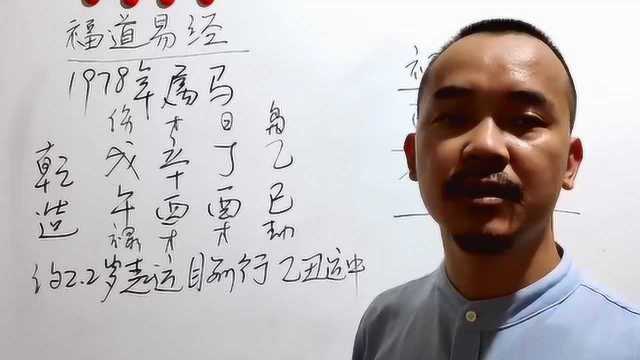 福道易经
1978年属马
伤 才 日 枭
乾 戊 辛 丁 乙
造 午 酉 酉 巳
禄 才 才 劫
约2.2岁走运目前行乙丑运中